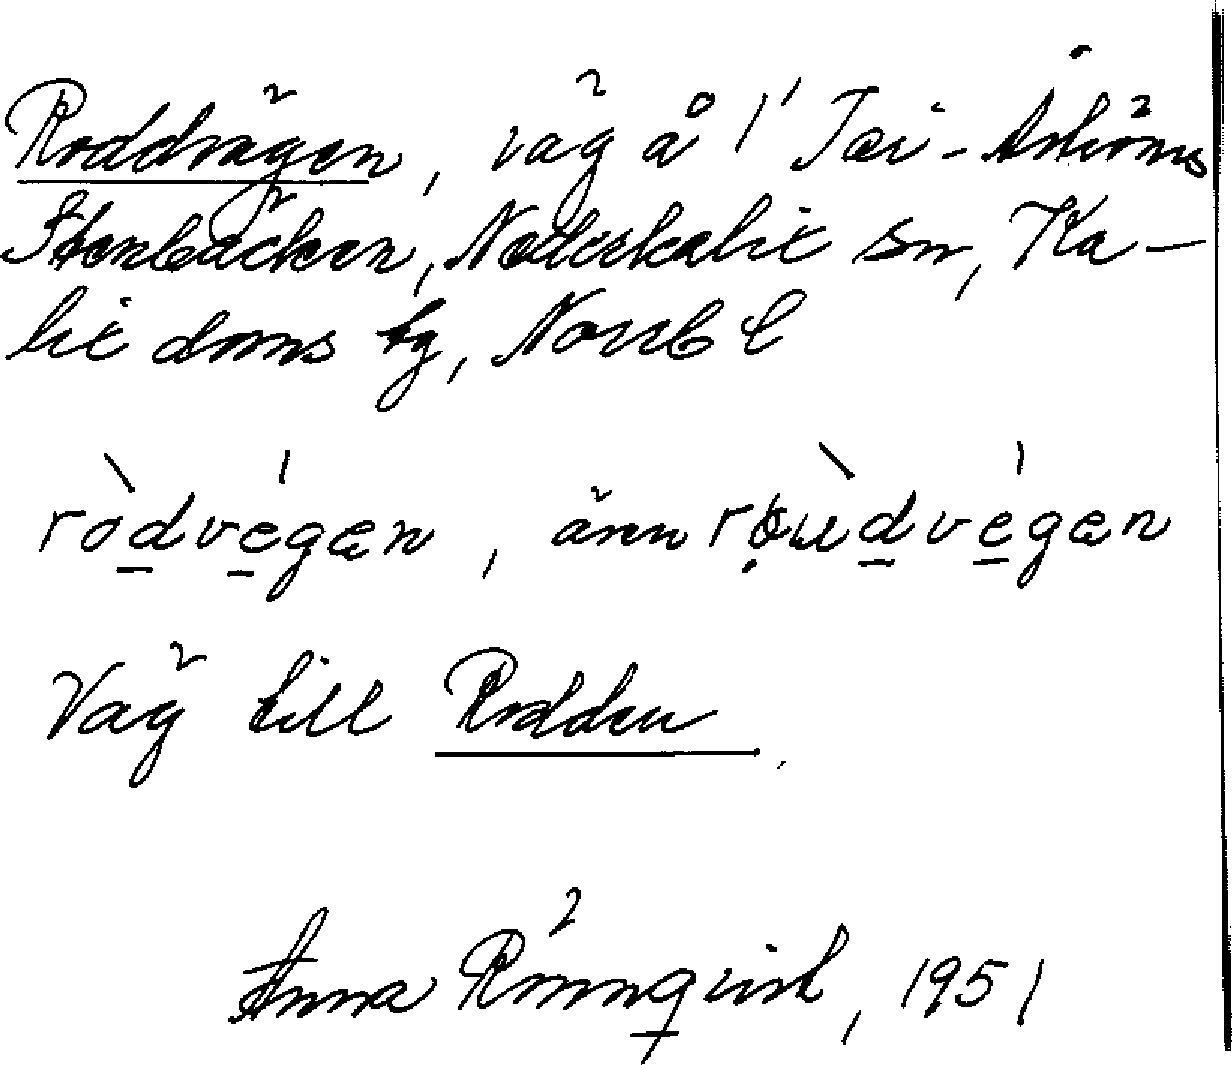 Roddvägen, väg å 1' Tei-Åströms
Stenbäcken, Nederkalix sn, Ka-
lix doms bg, Norrb l
ròdvégæn, änn ròu̇dvégæn
Väg till Rodden
Anna Rönnqvist, 1951